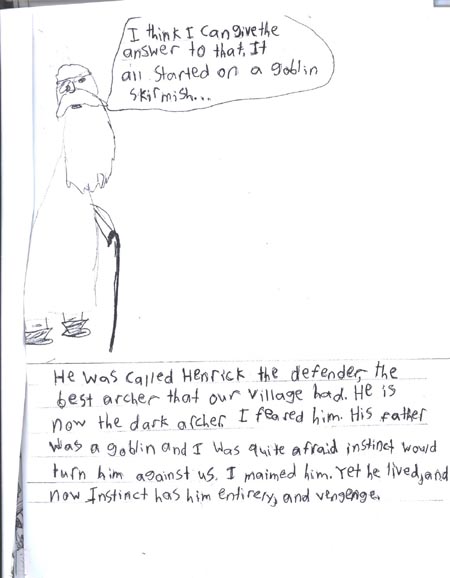 I think I can give the
answer to that, It
all started on a goblin
skirmish...
He was called Henrick the defender, the
best archer that our village had. He is
now the dark archer I feared him. His father
was a goblin and I was quite afraid instinct would
turn him against us. I maimed him. Yet he lived, and
now Instinct has him entirery, and vengenge.